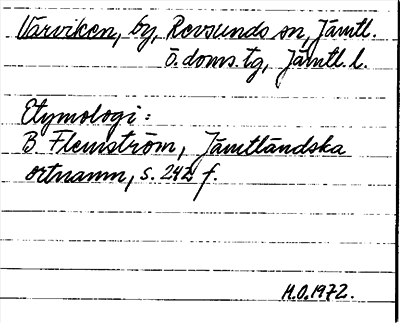 Varviken, by, Revsunds sn, Jämtl.
ö. doms. tg, Jämtl. l.
Etymologi:
B Flemström, Jämtländska
ortnamn, s. 242 f.
H.O. 1972.